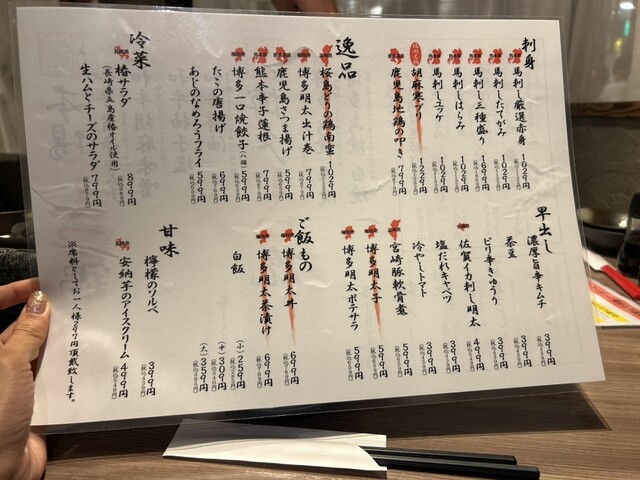 刺身
馬刺し 厳選赤身 1029円
馬刺し たてがみ 1029円
馬刺し 三種盛り 1699円
馬刺し はらみ 1029円
馬刺し ユッケ 1029円
胡麻寒ブリ 1229円
鹿児島地鶏の叩き 799円
逸品
桜島どりの鶏南蛮 1029円
博多明太出汁巻 799円
鹿児島さつま揚げ 599円
熊本辛子蓮根 799円
博多一口焼餃子(八個) 599円
たこの唐揚げ 699円
あじのなめろうフライ 599円
冷菜
椿サラダ 899円
(長崎県五島産椿オイル使用)
生ハムとチーズのサラダ 799円
早出し
濃厚旨辛キムチ 399円
茶豆 399円
ピリ辛きゅうり 399円
佐賀イカ刺し明太 499円
塩だれキャベツ 399円
冷やしトマト 399円
宮崎豚軟骨煮 599円
博多明太子 599円
博多明太ポテサラ 599円
ご飯もの
博多明太丼 699円
博多明太茶漬け 699円
白飯
(小) 259円
(中) 309円
(大) 359円
甘味
檸檬のソルベ 399円
安納芋のアイスクリーム 499円
※席料としてお一人様297円頂戴致します。